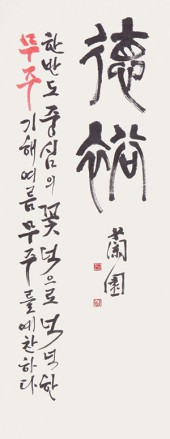 德裕
한반도 중심의 꽃 덕으로 넉넉한
무주 기해여름 무주를 예찬하다
蘭園